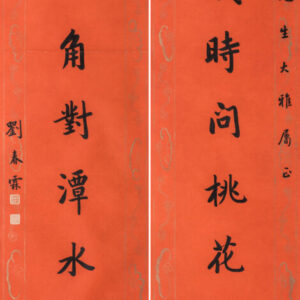 生大雅屬正
時问桃花
角對潭水
劉春霖